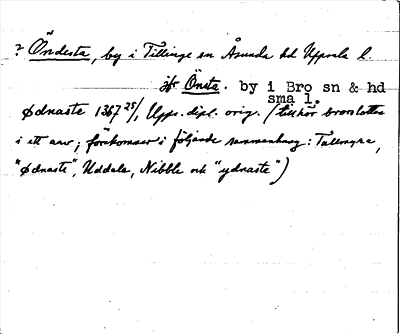 ? Öndesta, by i Tillinge sn Åsunda hd Uppsala l.
jfr Önsta. by i Bro sn & hd
sma l.
Ødnaste 1367 25/1 Upps. dipl. orig. (tillhör brorslotten
i ett arv; förekommer i följande sammanhang: Tallmyra,
"Ødnaste", Uddala, Nibble och "ydnaste")